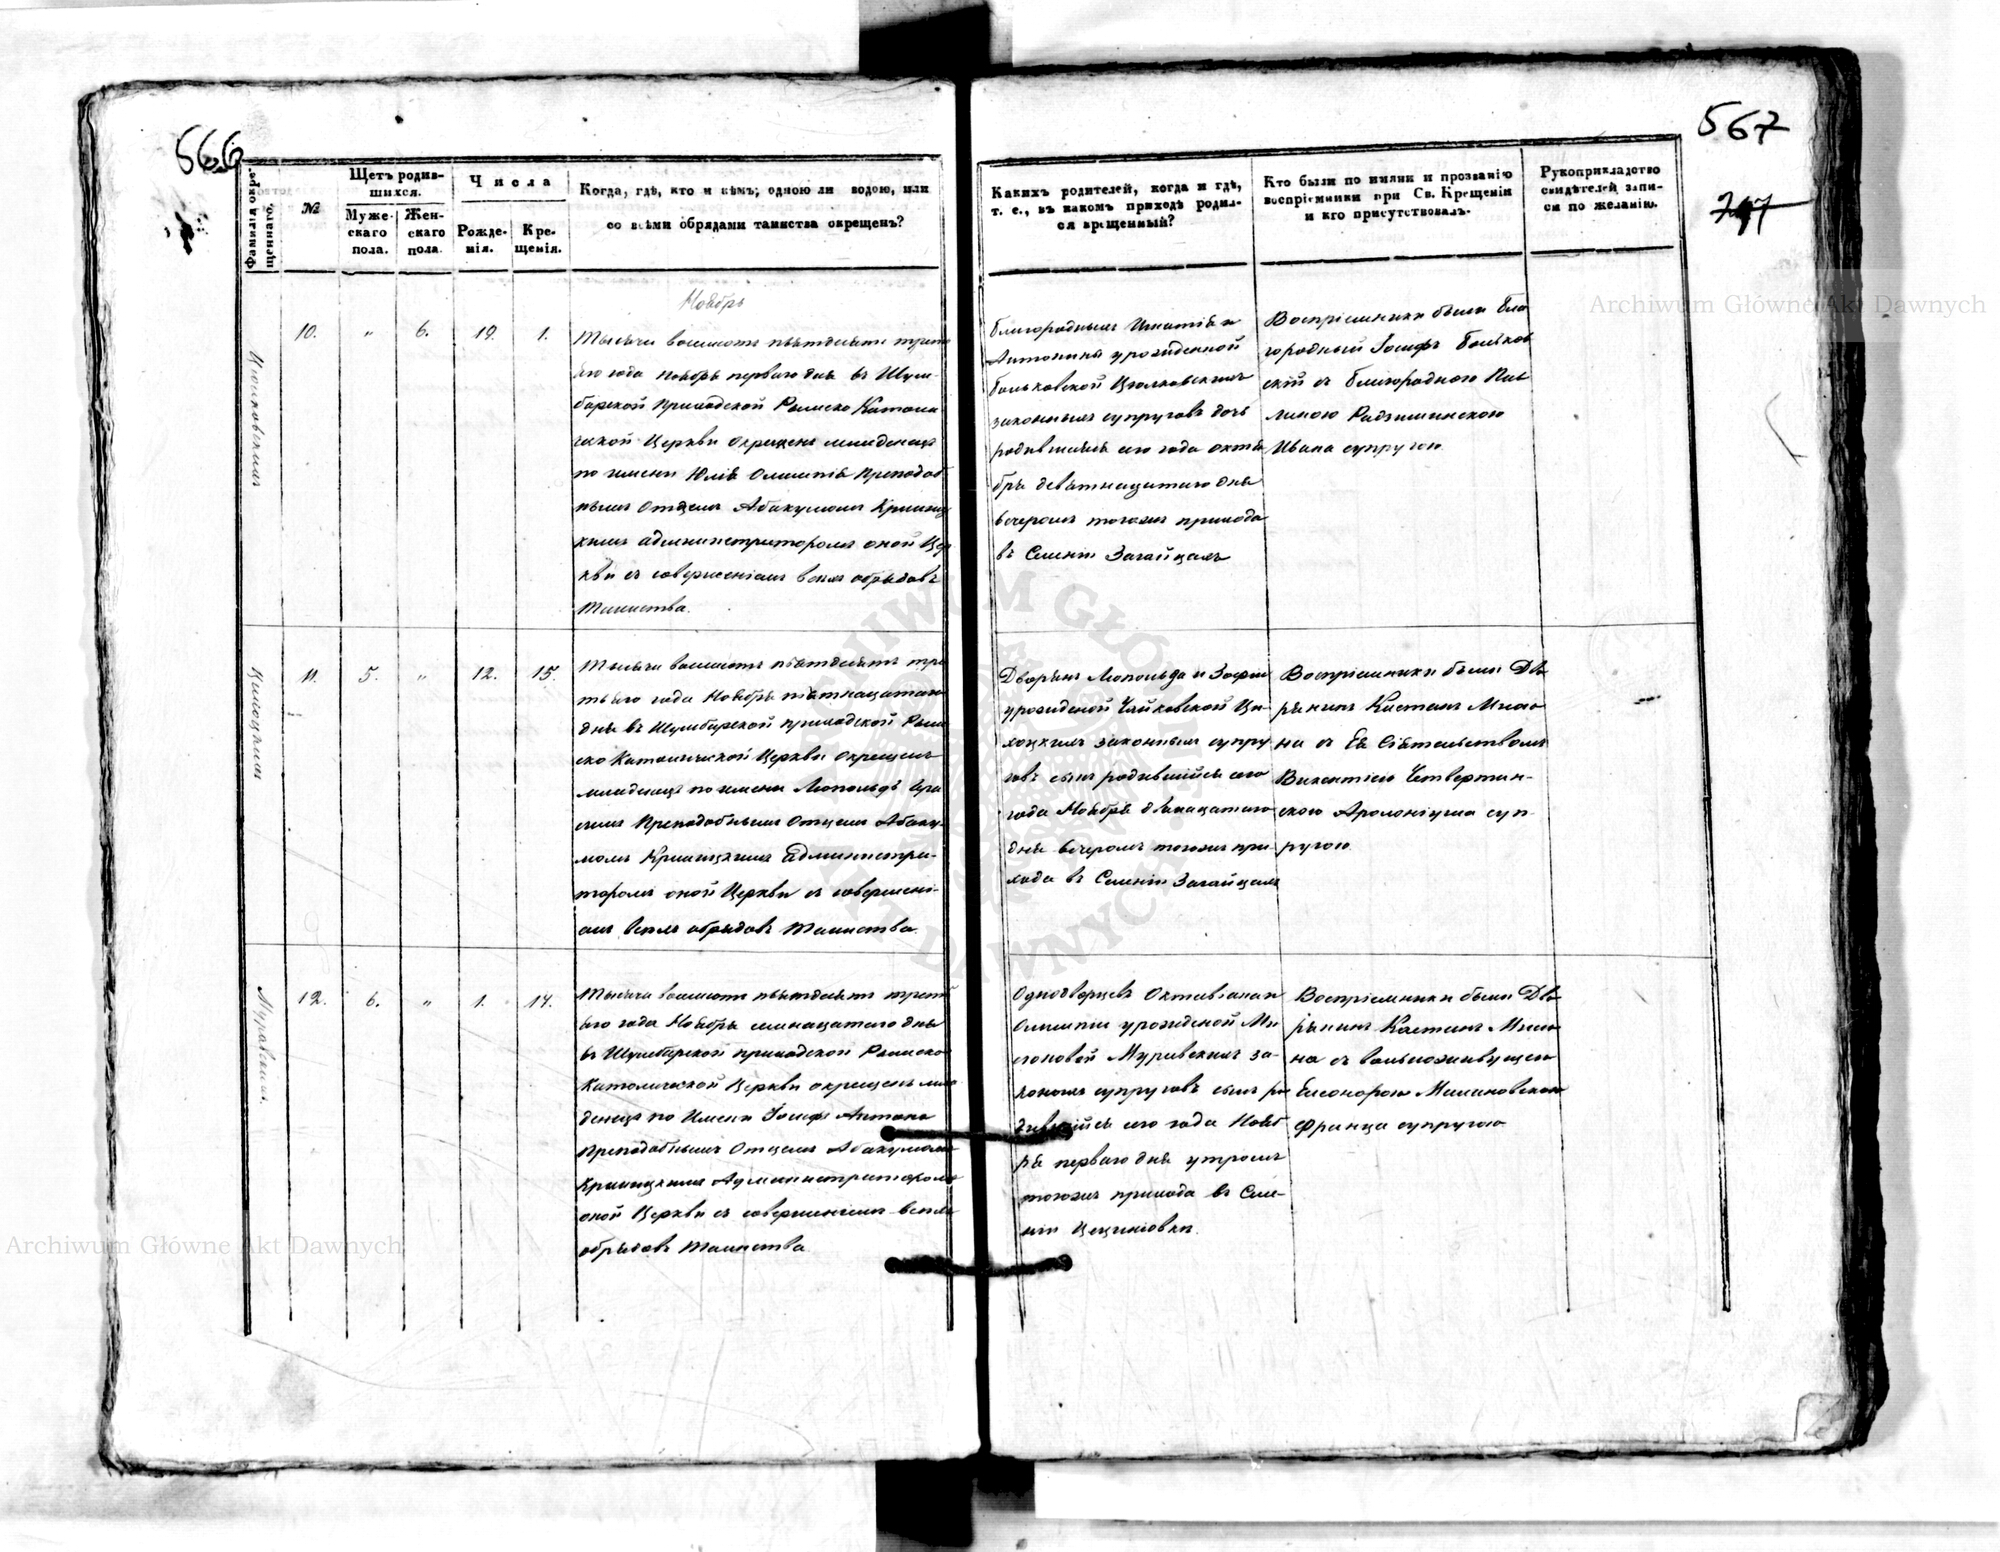 566
Фамилія окрещеннаго.
№
Щетъ родив-
шихся.
Муже-
скаго
пола.
Жен-
скаго
пола.
Числа
Рожде-
нія.
Кре-
щенія.
Когда, гдѣ, кто и кѣмъ; одною ли водою, или
со всѣми обрядами таинства окрещенъ?
Ноябрь
10. „ 6. 19. 1.
Тысяча восьмсотъ пятдесятъ треть
яго года Ноября перваго дня въ Шум-
барской Приходской Римско Католи
ческой Церкви окрещенъ младенецъ
по имени Юлія Олимпія Преподоб
нымъ Отцемъ Абакумомъ
кимъ администраторомъ оной Цер
кви съ совершеніемъ всѣхъ обрядовъ
Таинства.
11. 5. „ 12. 15.
Тысяча восьмсотъ пятдесятъ тре
тьяго года Ноября пятнацатого
дня въ Шумбарской приходской Рим
ско Католической Церкви окрещенъ
младенецъ по имени Леопольдъ
Преподобнымъ Отцемъ Абаку
момъ Администра-
торомъ оной Церкви съ совершені-
емъ всѣхъ обрядовъ Таинства.
Муравскихъ.
12. 6. „ 1. 17.
Тысяча восьмсотъ пятдесятъ треть
яго года Ноября семнацатого дня
въ Шумбарской приходской Римско
Католической Церкви окрещенъ мла
денецъ по Имени Іосифъ Антонъ
Преподобнымъ Отцемъ Абакумомъ
Администраторомъ
оной Церкви съ совершеніемъ всѣхъ
обрядовъ Таинства
567
747
Какихъ родителей, когда и гдѣ,
т. е., въ какомъ приходѣ родил-
ся крещенный?
Кто были по имяни и прозванію
воспріемники при Св. Крещеніи
и кто присутствовалъ.
Рукоприкладство
свидѣтелей, запи-
си по желанію.
Благородныхъ Игнатія и
Антонины урожденной
законныхъ супруговъ дочь
родившаяся сего года октя
бря девятнацатого дня
вечеромъ тогожъ прихода
въ Селеніи Загайцахъ
Воспріемники были Бла
городный Іосифъ
скій съ благородною Пав
линою Радзиминскою
Ивана супругою.
Дворянъ Леопольда и Зофіи
урожденой Чайковской
законныхъ супру
говъ сынъ родившійся сего
года Ноября двѣнацатого
дня вечеромъ тогожъ при-
хода въ Селеніи Загайцахъ
Воспріемники были Дво
рянинъ Каетанъ
на съ Ея Сіятельствомъ
Викентією Четвертин-
скою Аполонія суп-
ругою
Однодворцевъ Октавіана и
Олимпіи урожденой
Муравскихъ за-
конныхъ супруговъ сынъ ро
дившійся сего года Нояб
ря перваго дня утромъ
тогожъ прихода въ Селе-
ніи
Воспріемники были Дво
рянинъ Каетанъ
на съ вольноживущею
Елеонорою Малиновскою
Франца супругою
Archiwum Główne Akt Dawnych
Archiwum Główne Akt Dawnych